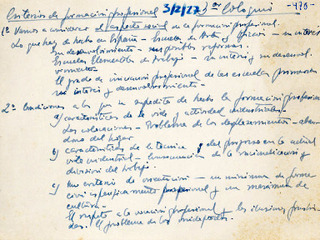 Criterios de formación profesional 3/2/77) 2º Coloquio -170-
1º Vamos a considerar el aspecto social de la formación profesional.
Lo que hay de hecho en España - Escuela de Artes y Oficios - su interés
su desenvolvimiento - sus posibles reformas.
Escuelas Elementales de trabajo - su interés, su desenvol.
vimiento
El grado de iniciación profesional de las escuelas primarias
su interés y desenvolvimiento.
2º Condiciones a las que se supedita de hecho la formación profesional
a) características de la vida y actividad industriales
Las colocaciones - Problema de los desplazamientos - aban
dono del hogar
b) características de la técnica y del progreso en la actual
vida industrial - consecuencia de la racionalización y
división del trabajo.
c) Un criterio de orientación - un mínimum de forma
ción específicamente profesional y un máximum de
cultura.
El respeto a la vocación profesional y las ilusiones
El problema de los